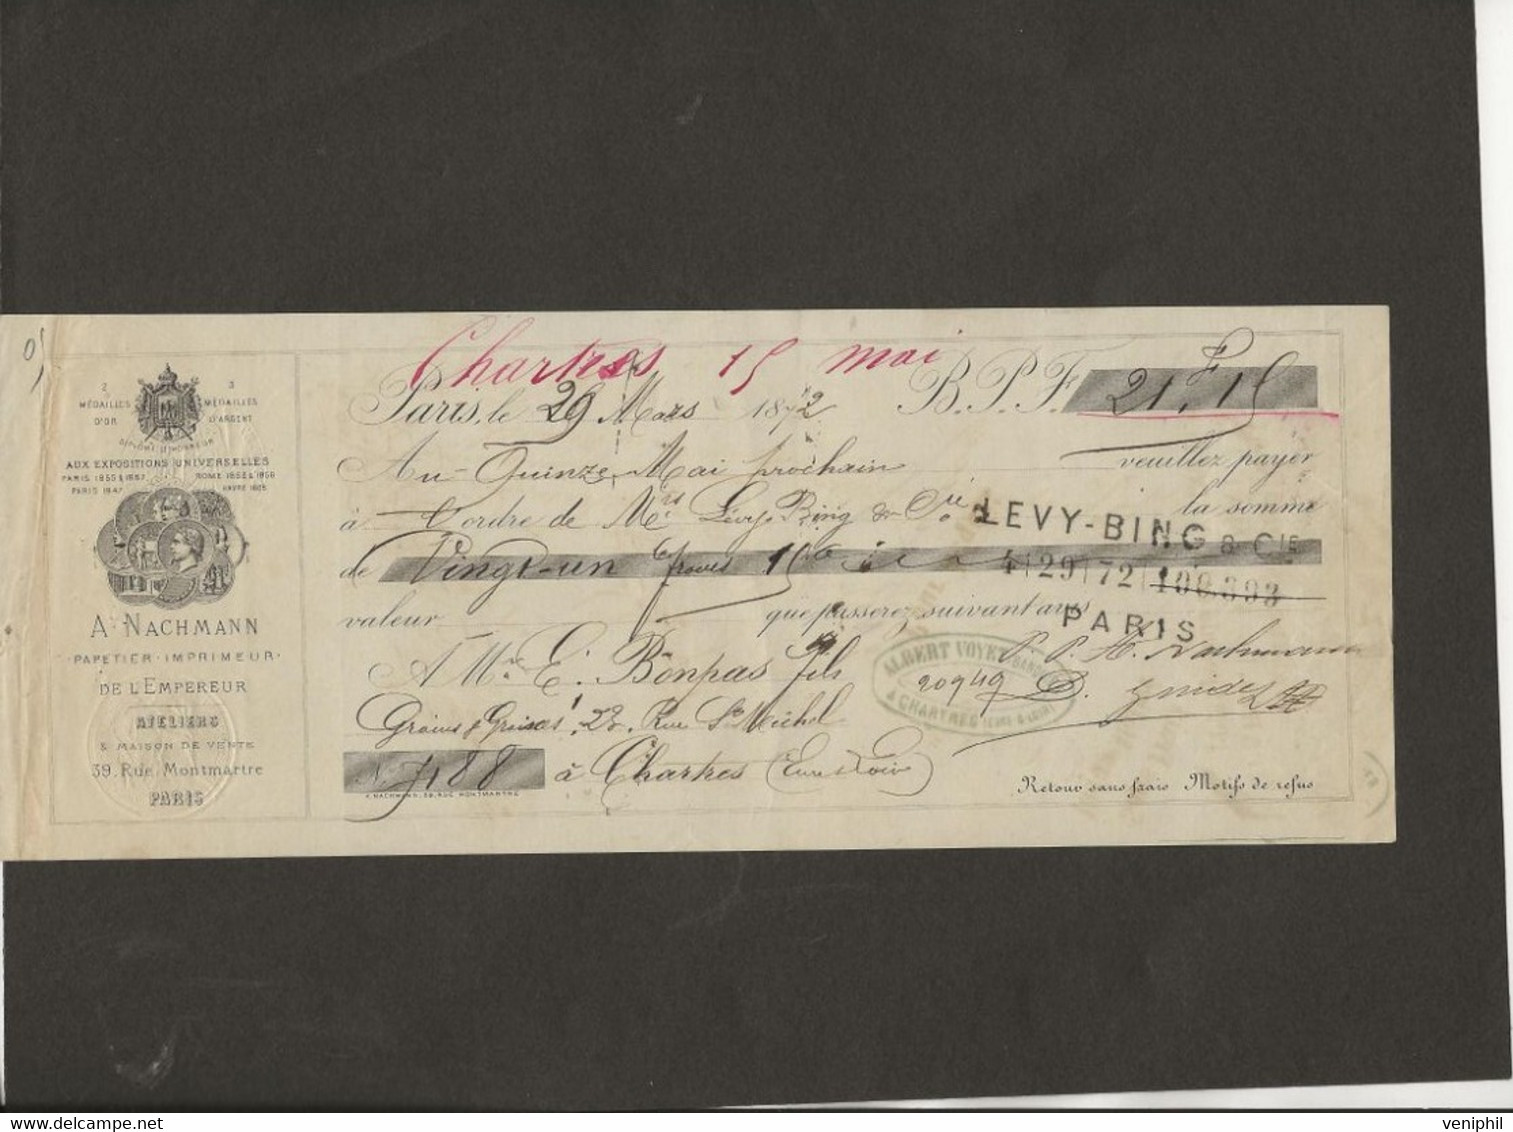 Chartres 15 mai
Paris, le 29 Mars 1872 B.P.F. 21F,15
Au Quinze Mai prochain veuillez payer
à l'ordre de Mrs Lévy Bing & Cie la somme
LEVY-BING & CIE
de Vingt-un francs 15c
4|29|72|100.393
valeur que passerez suivant avis
PARIS
P. P. A. Nachmann
A Mr. E. Bonpas fils
ALBERT VOYET
A CHARTRES (EURE & LOIR)
20949
Grains & 23. Rue St Michel
No 7188 à Chartres (Eure & Loir)
A. NACHMANN, 39, RUE MONTMARTRE
Retour sans frais Motifs de refus
2 MÉDAILLES D'OR
3 MÉDAILLES D'ARGENT
DIPLOME D'HONNEUR
AUX EXPOSITIONS UNIVERSELLES
PARIS 1855 & 1867
PARIS 1847
ROME 1855 & 1856
HAVRE 1868
A. NACHMANN
PAPETIER-IMPRIMEUR
DE L'EMPEREUR
ATELIERS
& MAISON DE VENTE
39. Rue Montmartre
PARIS
veniphil